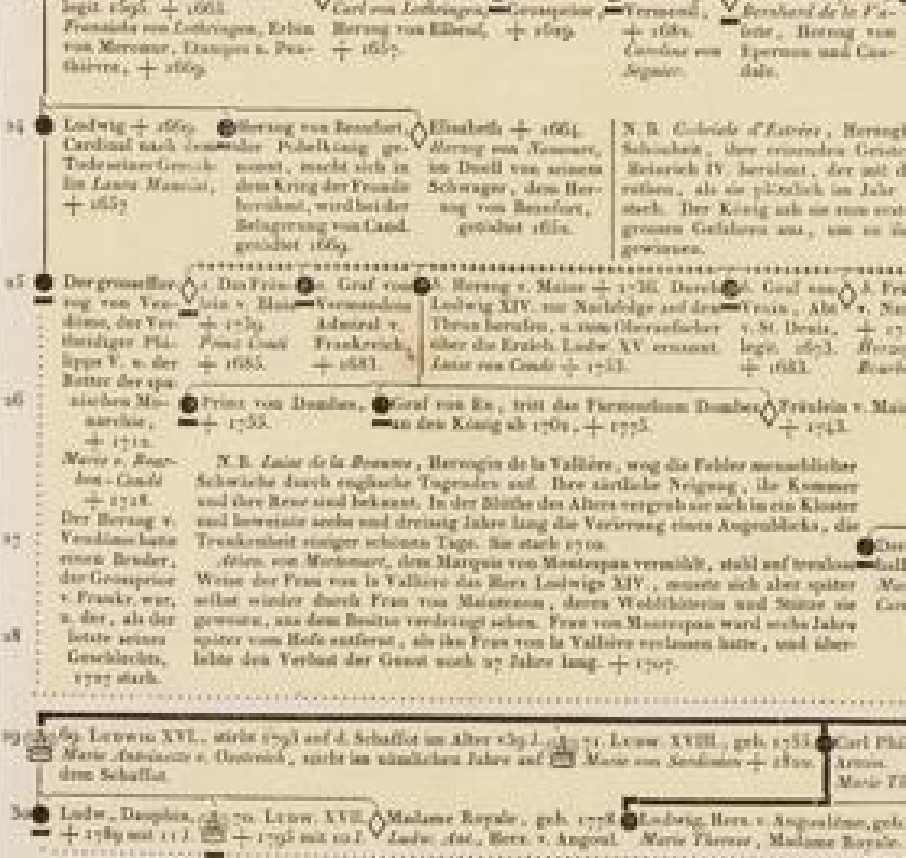 legit. 1695. + 1665.
Franziska von Lothringen, Erbin
von Mercœur, Etampes u. Pen-
thièvre, + 1669.
Carl von Lothringen,
Herzog von Elbeuf,
+ 1657.
Grossprior,
+ 1629.
Verneuil,
+ 1682.
Caroline von
Seguier.
Bernhard de la Va-
lette, Herzog von
Epernon und Can-
dale.
24
Ludwig + 1669.
Cardinal nach dem
Tode seiner Gemah-
lin Laura Mancini,
+ 1657
Herzog von Beaufort,
der Pöbelkönig ge-
nannt, macht sich in
dem Krieg der Fronde
berühmt, wird bei der
Belagerung von Cand.
getödtet 1669.
Elisabeth + 1664.
Herzog von Nemours,
im Duell von seinem
Schwager, dem Her-
zog von Beaufort,
getödtet 1652.
N. B. Gabriele d'Estrées, Herzogi
Schönheit, ihre reizenden Geistes
Heinrich IV. berühmt, der mit d
rathen, als sie plötzlich im Jahr
starb. Der König sah sie zum erst
grossen Gefahren aus, um zu ih
gewinnen.
25
Der grosse Her-
zog von Ven-
dôme, der Ver-
theidiger Phi-
lipps V. u. der
Retter der spa-
nischen Mo-
narchie,
+ 1712.
Marie v. Bour-
bon-Condé
+ 1718.
Der Herzog v.
Vendôme hatte
einen Bruder,
der Grossprior
v. Frankr. war,
u. der, als der
letzte seines
Geschlechts,
1727 starb.
Das Fräu-
lein v. Blois
+ 1739.
Prinz Conti
+ 1685.
Graf von
Vermandois
Admiral v.
Frankreich,
+ 1683.
b. Herzog v. Maine + 1736. Durch
Ludwig XIV. zur Nachfolge auf den
Thron berufen, u. zum Oberaufseher
über die Erzieh. Ludw. XV ernannt.
Luise von Condé + 1753.
b. Graf von
Vexin, Abt
v. St. Denis,
legit. 1673.
+ 1683.
26
Prinz von Dombes,
+ 1755.
Graf von Eu, tritt das Fürstenthum Dombes
an den König ab 1762, + 1775.
Fräulein v. Mai
+ 1743.
N. B. Luise de la Beaume, Herzogin de la Vallière, wog die Fehler menschlicher
Schwäche durch englische Tugenden auf. Ihre zärtliche Neigung, ihr Kummer
und ihre Reue sind bekannt. In der Blüthe des Alters vergrub sie sich in ein Kloster
und beweinte sechs und dreissig Jahre lang die Verirrung eines Augenblicks, die
Trunkenheit einiger schönen Tage. Sie starb 1710.
von Mortemart, dem Marquis von Montespan vermählt, stahl auf treulose
Weise der Frau von la Vallière das Herz Ludwigs XIV., musste sich aber später
selbst wieder durch Frau von Maintenon, deren Wohlthäterin und Stütze sie
gewesen, aus dem Besitze verdrängt sehen. Frau von Montespan ward sechs Jahre
später vom Hofe entfernt, als ihn Frau von la Vallière verlassen hatte, und über-
lebte den Verlust der Gunst noch 27 Jahre lang. + 1707.
27
28
29
69. LUDWIG XVI., stirbt 1793 auf d. Schaffot im Alter v. 39 J.
Marie Antoinette v. Oestreich, stirbt im nämlichen Jahre auf
dem Schaffot.
71. LUDW. XVIII., geb. 1755.
Marie von Sardinien + 1810.
Carl Phil
Artois.
Marie Th
30
Ludw., Dauphin,
+ 1789 mit 11 J.
70. LUDW. XVII.
+ 1795 mit 10 J.
Madame Royale, geb. 1778.
Ludw. Ant., Herz. v. Angoul.
Ludwig, Herz. v. Angoulême, geb.
Marie Therese, Madame Royale.